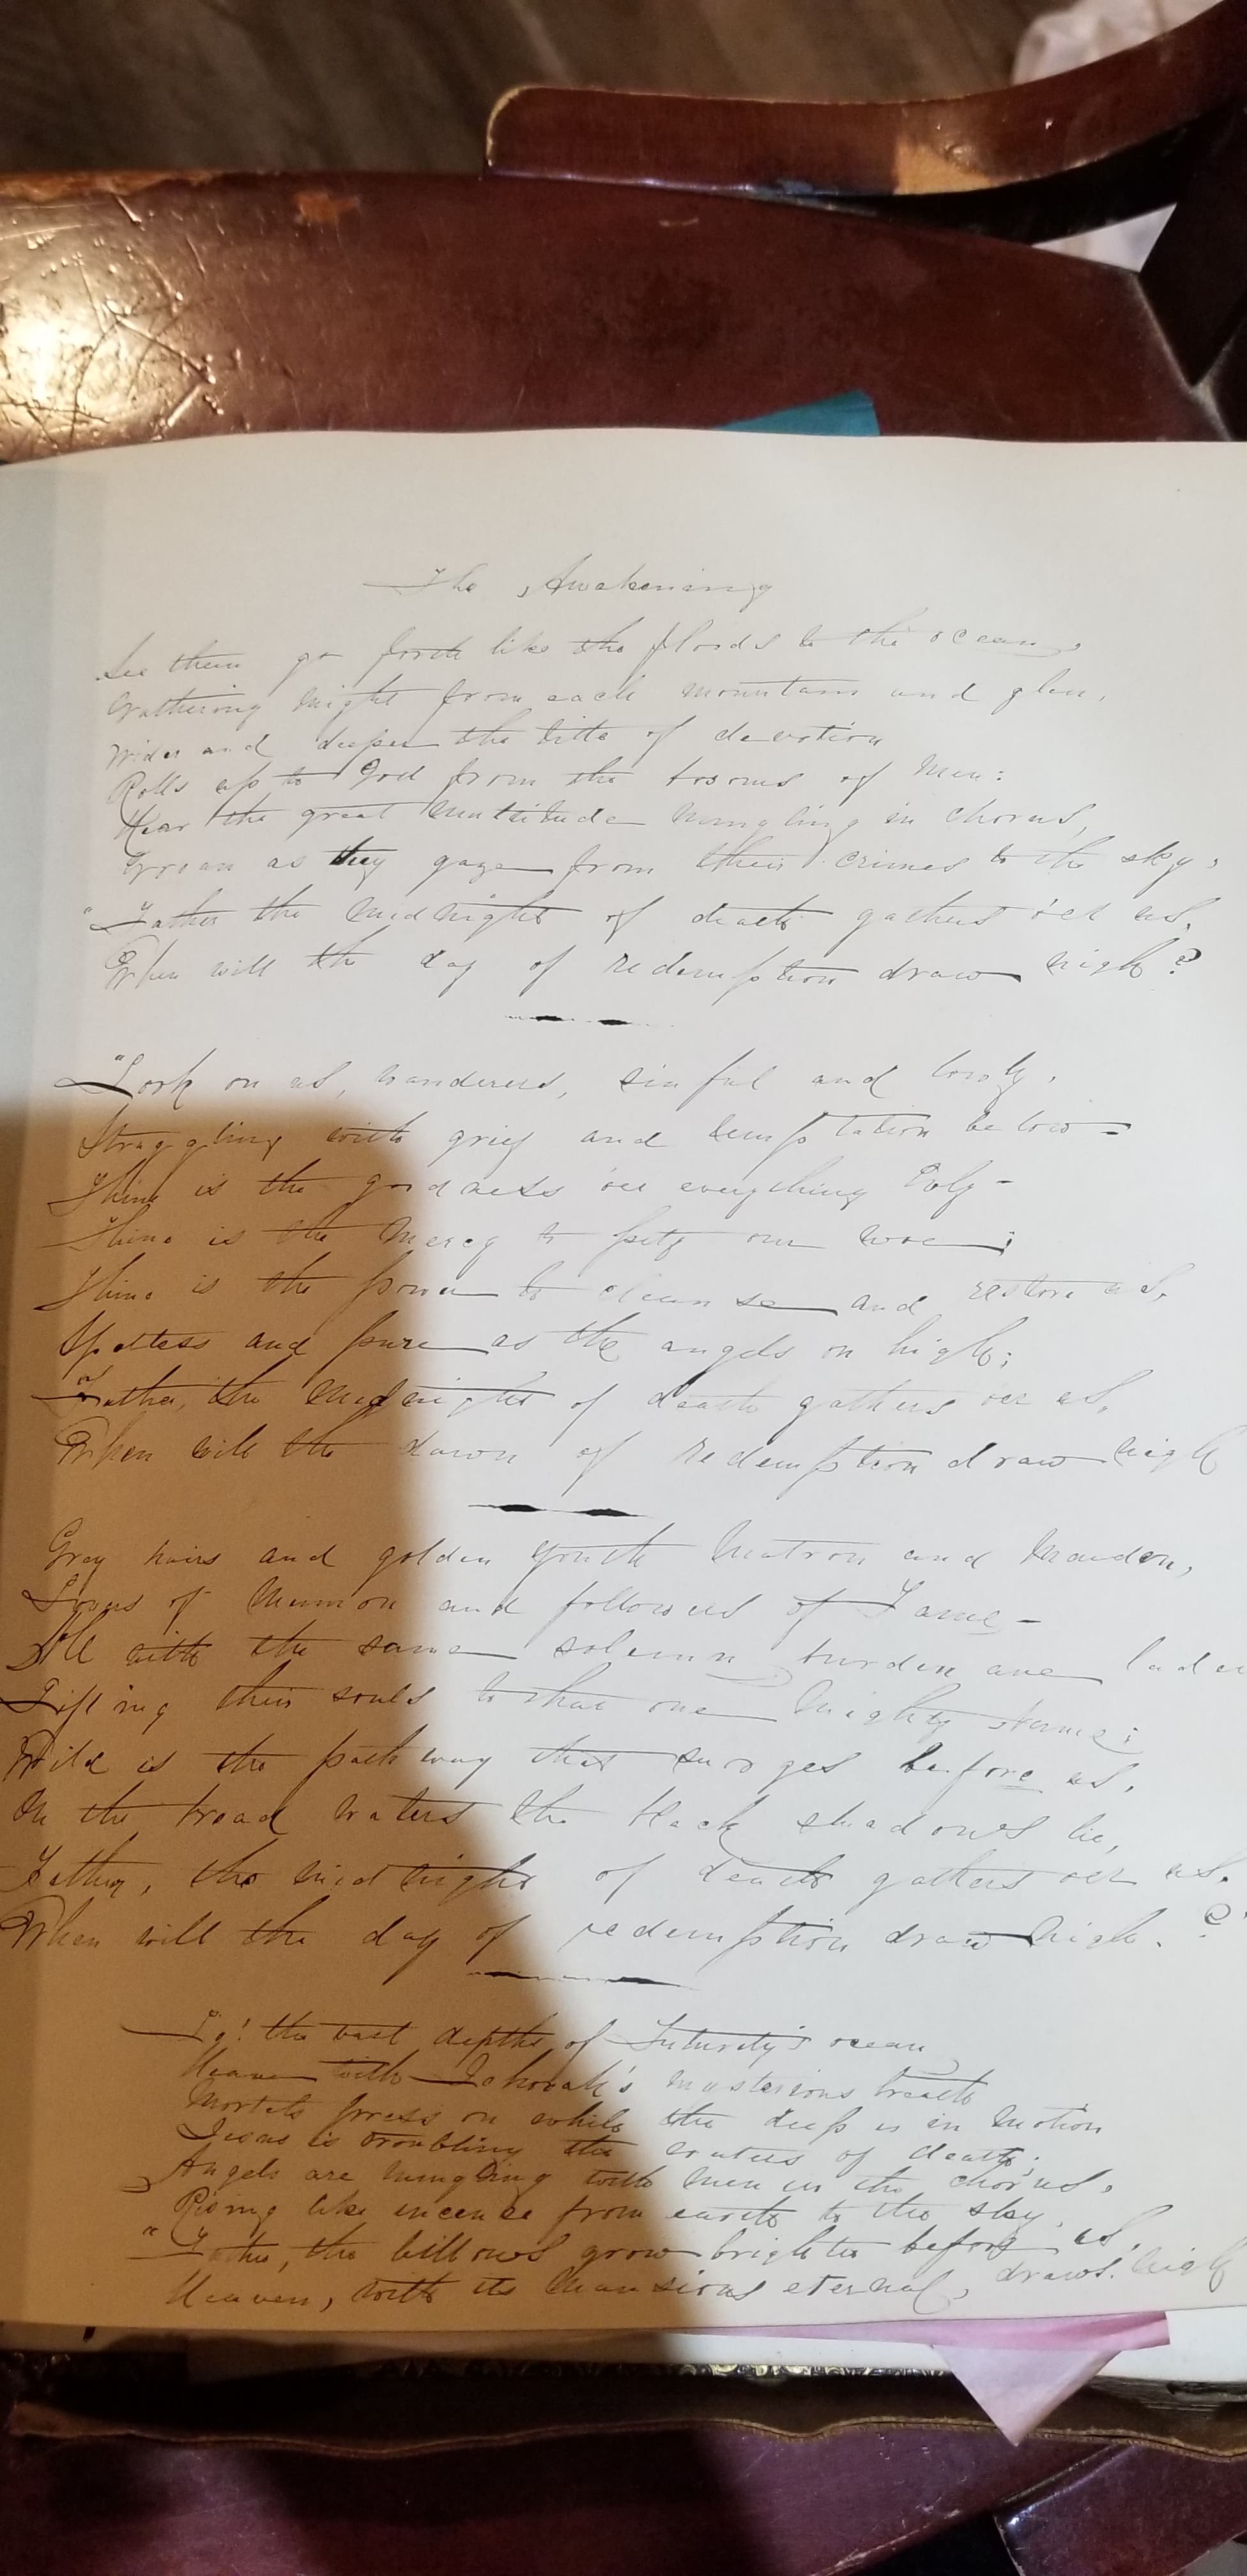 The Awakening
See them go forth like the floods to the ocean,
Gathering might from each mountain and glen,
Wider and deeper the tide of devotion
Rolls up to God from the bosoms of Men:
Hear the great multitude mingling in chorus,
Groan as they gaze from their crimes to the sky,
"Father the midnight of death gathers o'er us,
When will the day of redemption draw nigh?
"Look on us, wanderers, sinful and lowly,
Struggling with grief and temptation below—
Thine is the goodness o'er everything Holy—
Thine is the Mercy to pity our woe;
Thine is the power to cleanse and restore us,
Spotless and pure as the angels on high;
"Father, the Midnight of death gathers o'er us,
When will the dawn of redemption draw nigh
Grey hairs and golden youth Matron and Maiden,
Lovers of Mammon and followers of Fame—
All with the same solemn burden are laden
Lifting their souls to that one Mighty Name;
Wild is the pathway that surges before us,
On the broad waters the black shadows lie,
Father, the midnight of death gathers o'er us.
When will the day of redemption draw nigh. ?"
Lo! the vast depths of Futurity's ocean
Heave with Jehovah's mysterious breath
Mortals press on while the deep is in Motion
Jesus is troubling the waters of death;
Angels are mingling with men in the chorus,
Rising like incense from earth to the sky,
"Father, the billows grow brighter before us,
Heaven, with its Mansions eternal, draws. nigh